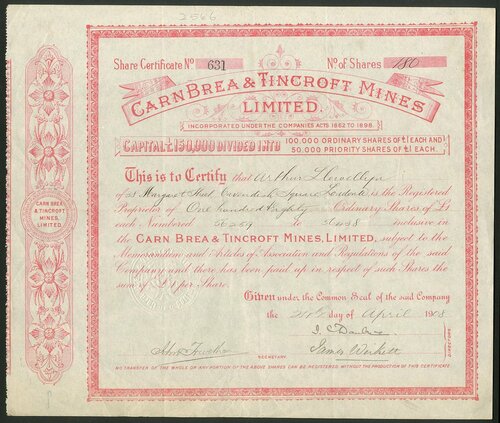 2566
Share Certificate No 631 No of Shares 180
CARN BREA & TINCROFT MINES
LIMITED.
INCORPORATED UNDER THE COMPANIES ACTS 1862 TO 1898.
CAPITAL £150,000 DIVIDED INTO 100,000 ORDINARY SHARES OF £1 EACH AND
50,000 PRIORITY SHARES OF £1 EACH.
This is to Certify that Arthur Llewellyn
of 28 Margaret Street Cavendish Square London is the Registered
Proprietor of One hundred & eighty Ordinary Shares of £1
each Numbered to inclusive in
the CARN BREA & TINCROFT MINES, LIMITED, subject to the
Memorandum and Articles of Association and Regulations of the said
Company and there has been paid up in respect of such Shares the
sum of £1 per Share.
Given under the Common Seal of the said Company
the day of April 1908
SECRETARY
DIRECTORS
NO TRANSFER OF THE WHOLE OR ANY PORTION OF THE ABOVE SHARES CAN BE REGISTERED WITHOUT THE PRODUCTION OF THIS CERTIFICATE
CARN BREA
& TINCROFT
MINES,
LIMITED.